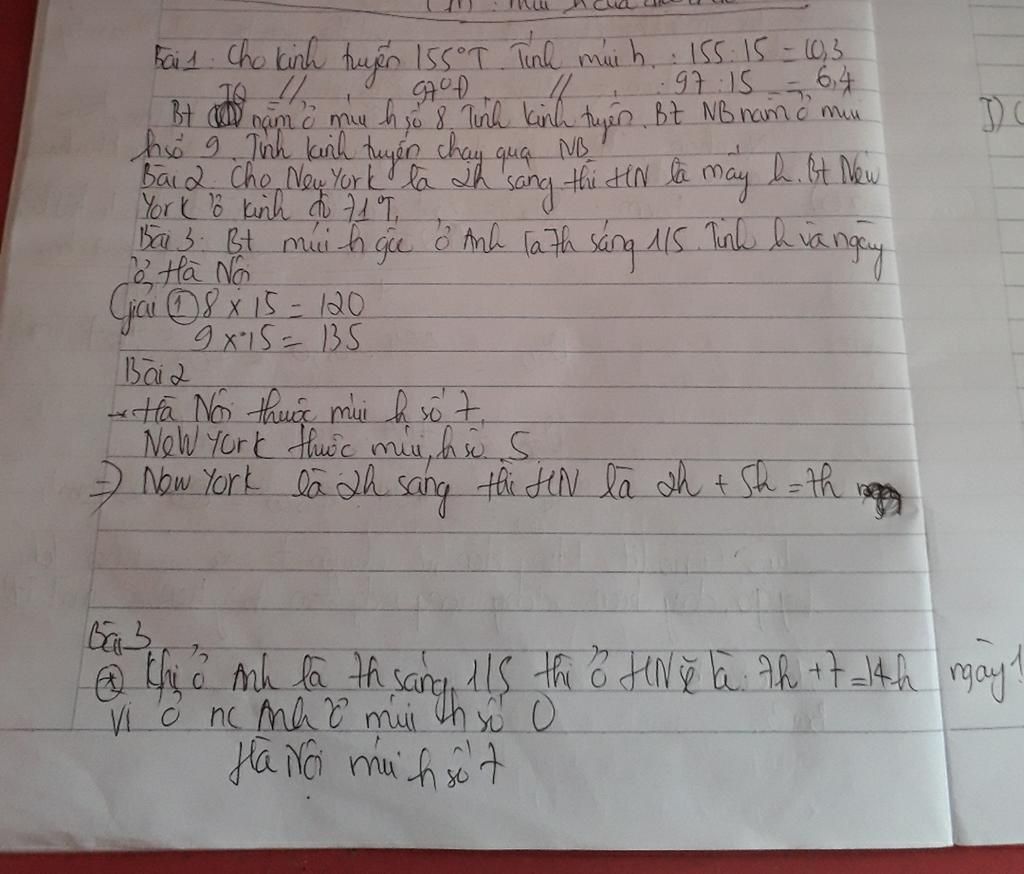 Bài 1. Cho kinh tuyến 155°T. Tính múi h. : 155 : 15 = 10,3
TQ // 97°Đ // : 97 : 15 = 6,4
Bt nằm ở múi h số 8. Tính kinh tuyến. Bt NB nằm ở múi
h số 9. Tính kinh tuyến chạy qua NB
Bài 2. Cho New York là 2h sáng thì HN là mấy h. Bt New
York ở kinh độ 71°T.
Bài 3. Bt múi h gốc ở Anh là 7h sáng 1/5. Tính h và ngày
ở Hà Nội
Giải ① 8 x 15 = 120
9 x 15 = 135
Bài 2
- Hà Nội thuộc múi h số 7.
New York thuộc múi h số 5
=> New York là 2h sáng thì HN là 2h + 5h = 7h
Bài 3
Khi ở Anh là 7h sáng 1/5 thì ở HN là: 7h + 7 = 14h ngày 1
Vì ở nc Anh ở múi h số 0
Hà Nội múi h số 7